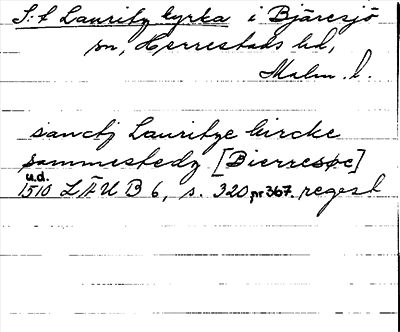 S:t Lauritz kyrka i Bjäresjö
sn, Herrestads hd,
Malm. l.
sanctj Lauritze kircke
sammestedz [Bierresøe]
u.d.
1510 LÄUB 6, s. 320 nr 367. regest